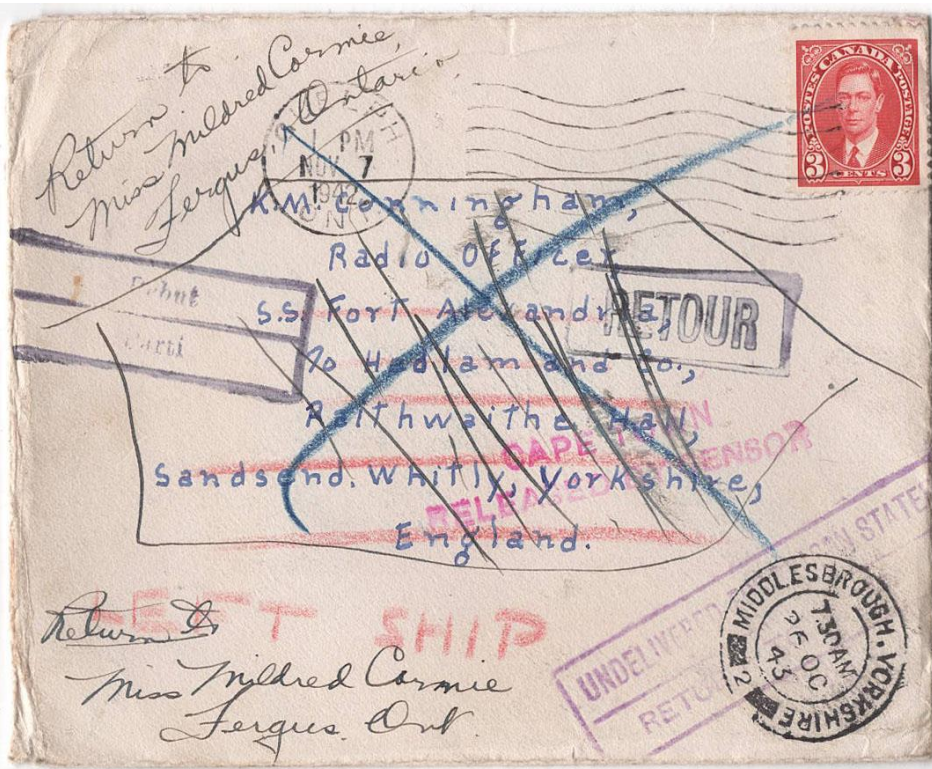 Return to
Miss Mildred Cormie,
Fergus, Ontario.
1 PM
NOV 7
1942
ONT
POSTES CANADA POSTAGE
3 CENTS 3
K.M. Cunningham,
Radio Officer
S.S. Fort Alexandria,
c/o Headlam and Co.,
Raithwaithe Hall,
Sandsend. Whitly, Yorkshire,
England.
Début
Parti
RETOUR
CAPE TOWN
RELEASED BY CENSOR
LEFT SHIP
Return to
Miss Mildred Cormie
Fergus. Ont.
UNDELIVERED
RETU
MIDDLESBROUGH. YORKSHIRE
730AM
26 OC
43
2